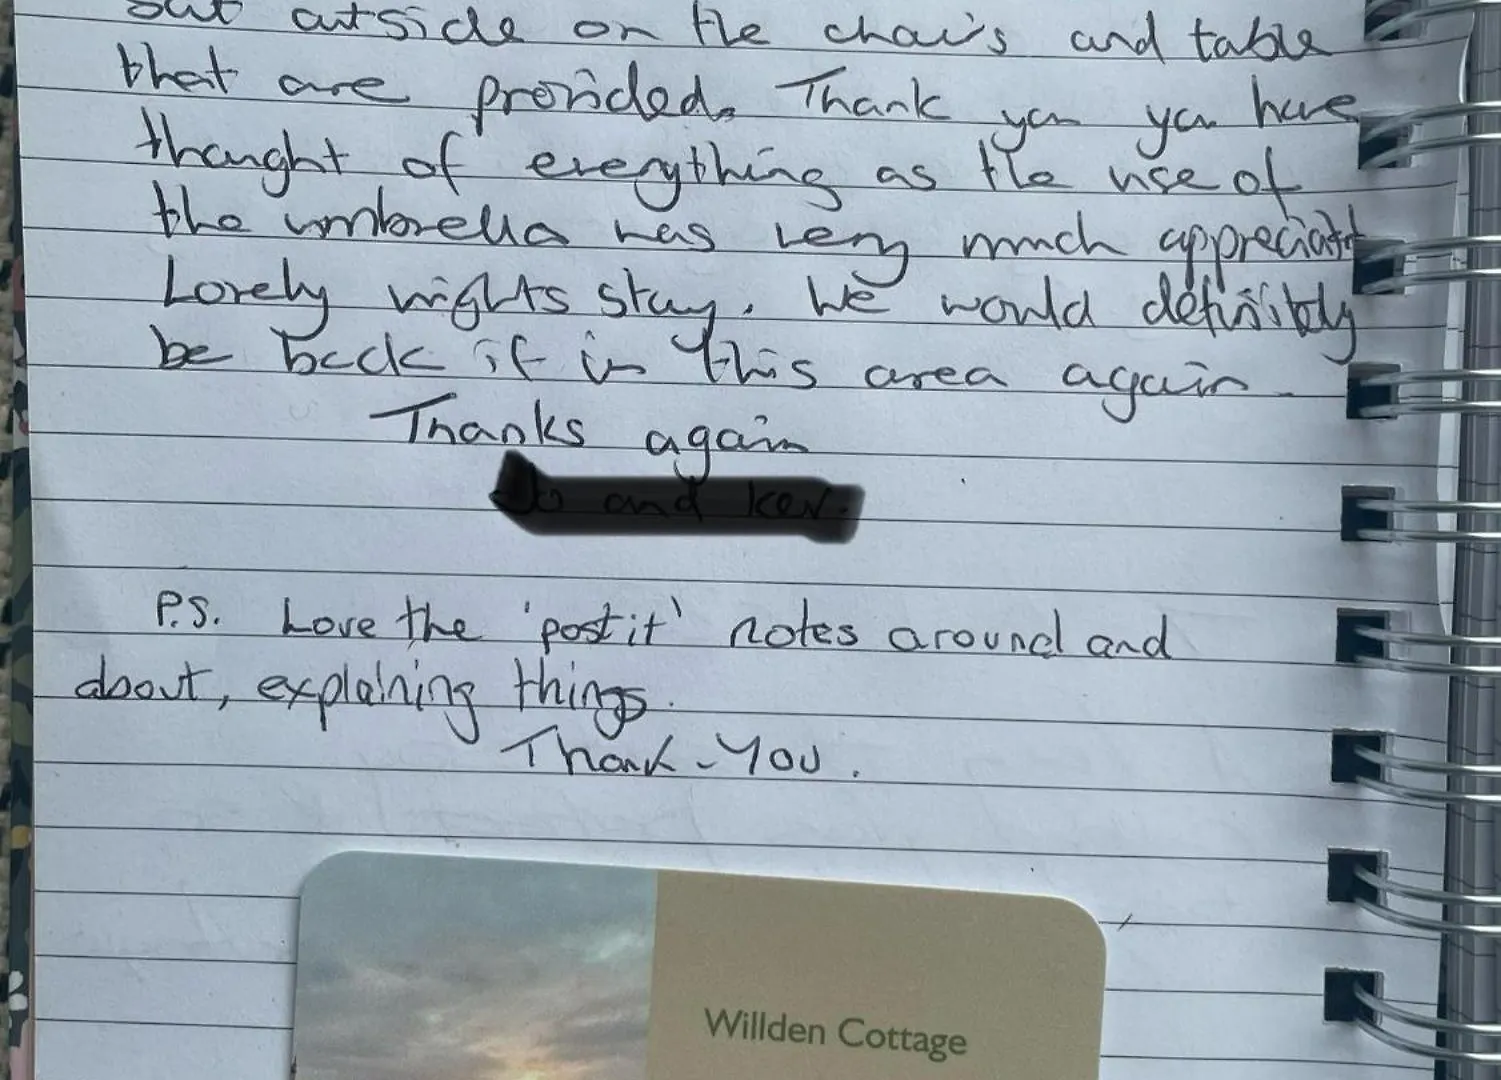 sat outside on the chairs and table
that are provided. Thank you you have
thought of everything as the use of
the umbrella was very much appreciated
Lovely nights stay. We would definitely
be back if in this area again.
Thanks again
P.S. Love the 'post it' notes around and
about, explaining things.
Thank-You.
Willden Cottage